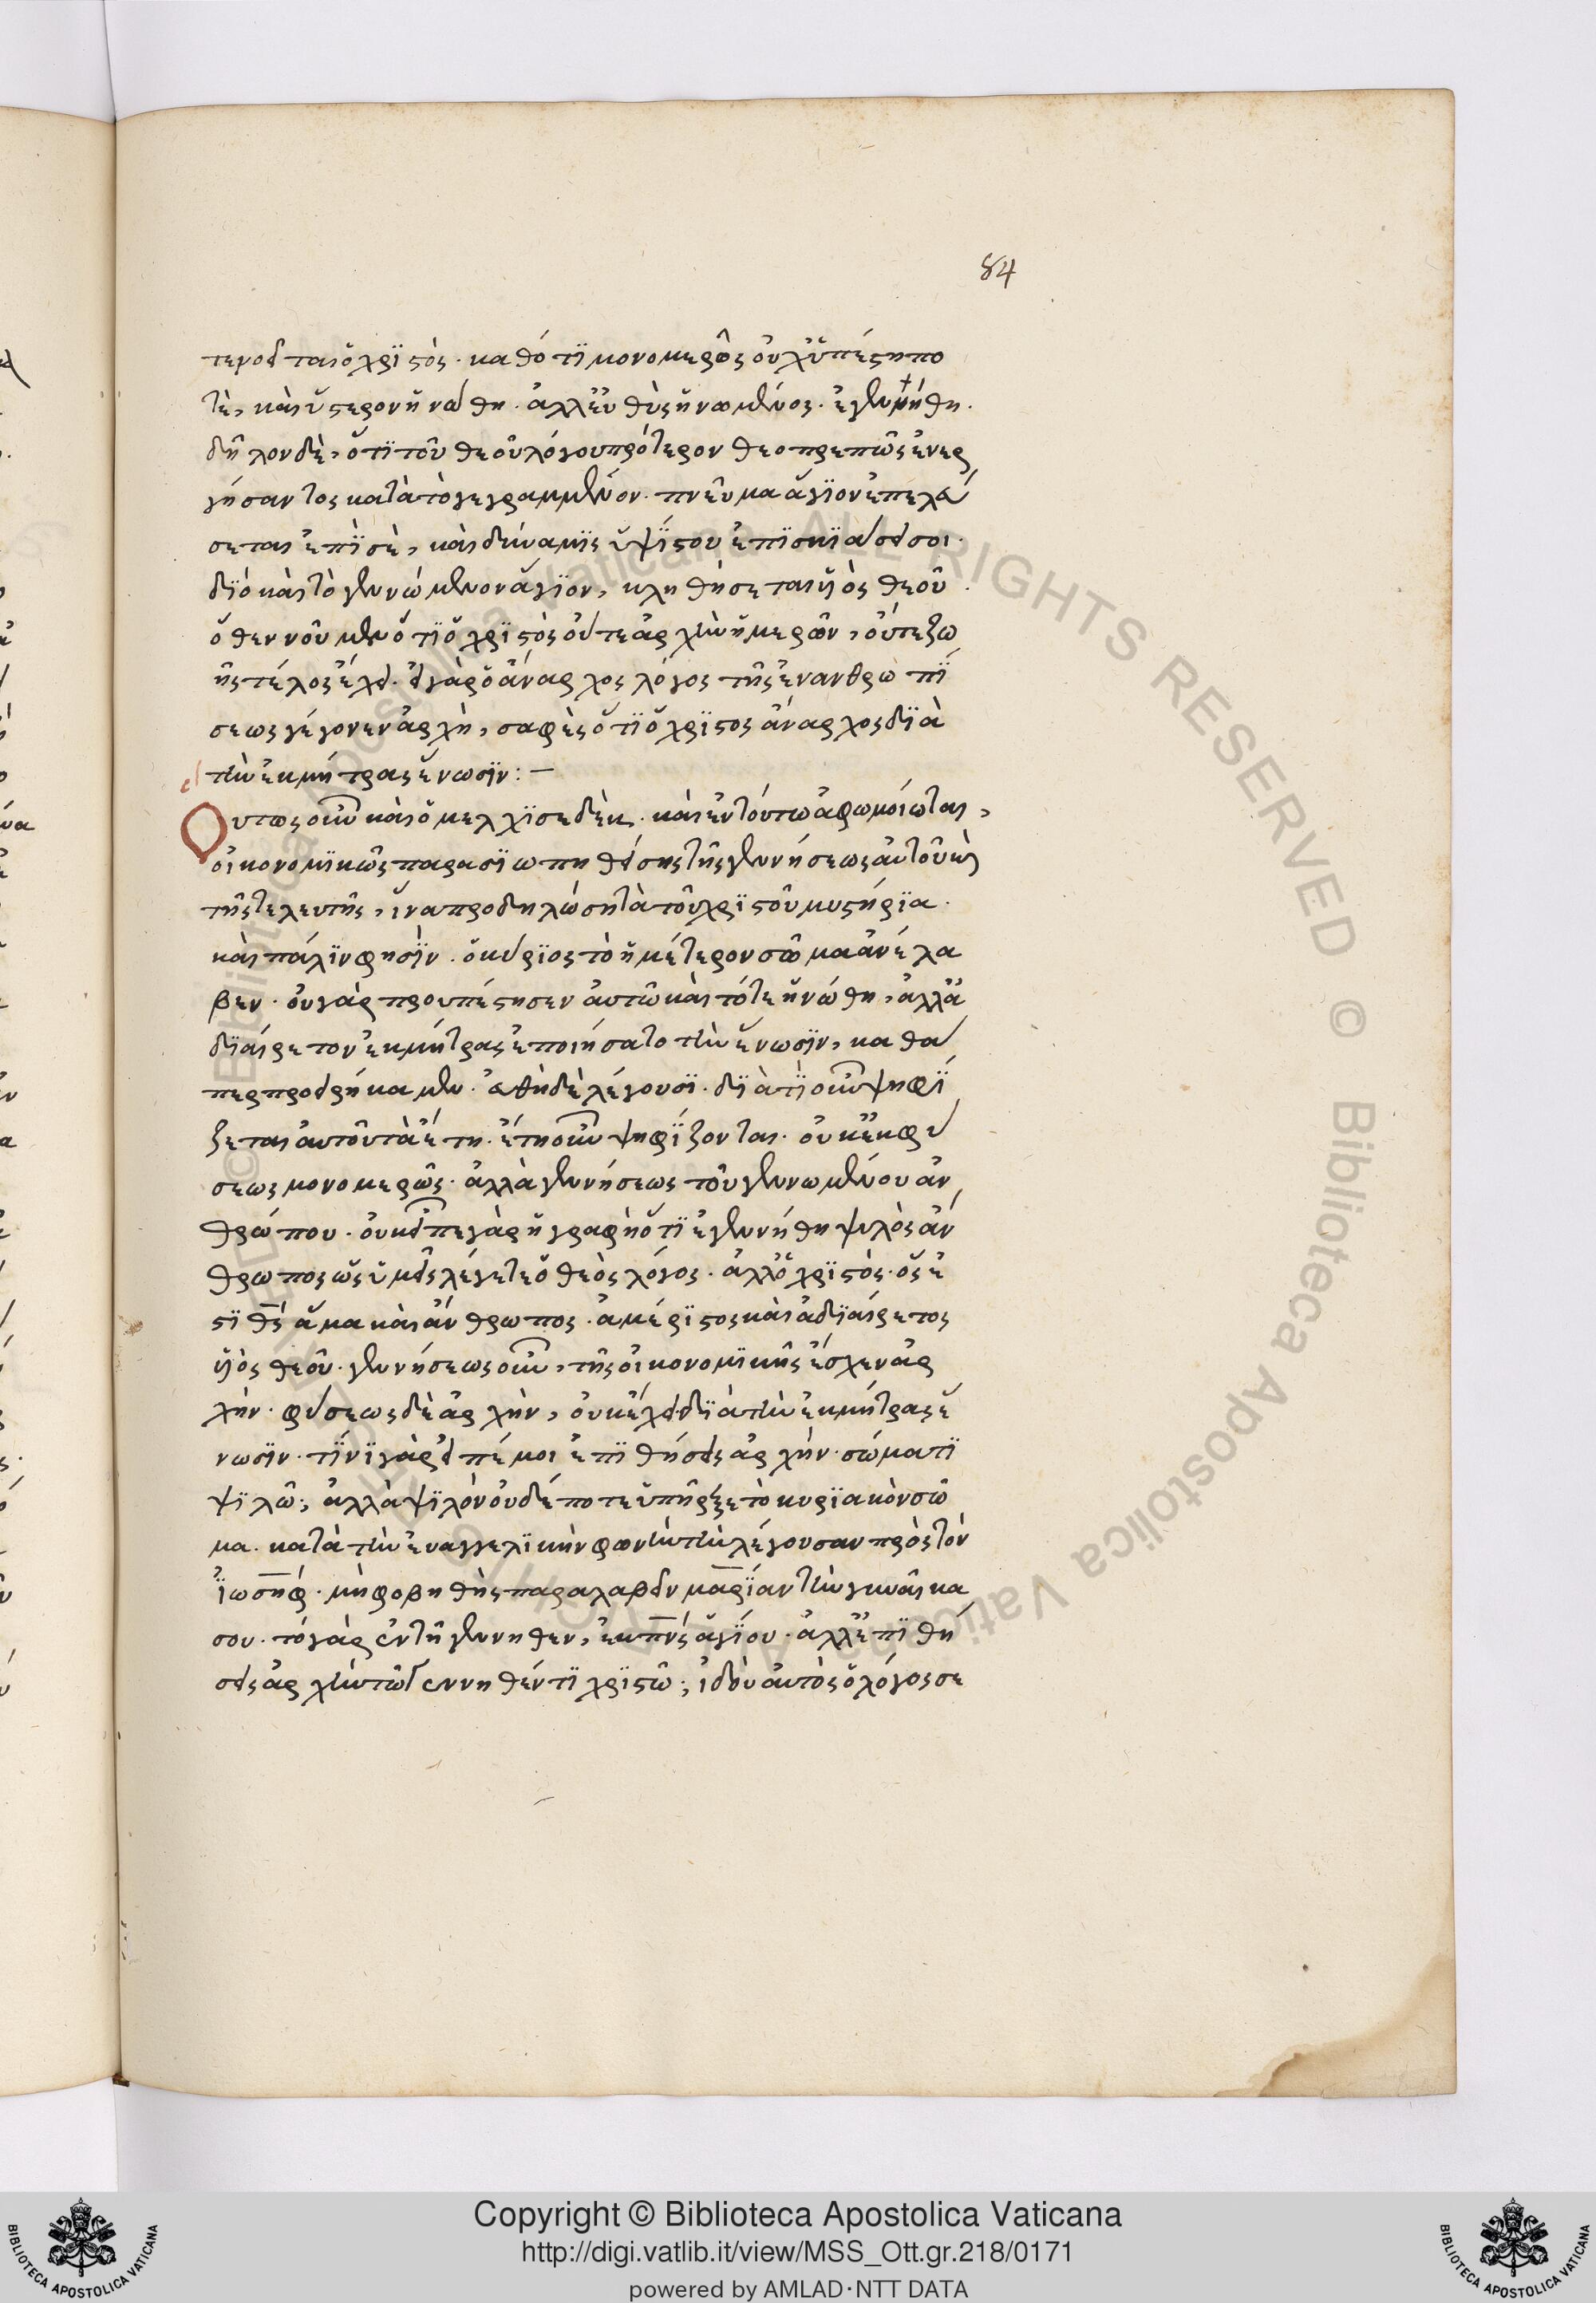 84
τερεύεται ὁ χριστὸς. καθότι μονομερῶς οὐχ ὑπέστη πο
τὲ, καὶ ὕστερον ἡνώθη. ἀλλ' εὐθὺς ἡνωμένος. ἐγεννήθη.
δῆλον δὲ, ὅτι τοῦ θεοῦ λόγου πρότερον θεοπρεπῶς ἐνερ
γήσαντος κατὰ τὸ γεγραμμένον. πνεῦμα ἅγιον ἐπελεύ
σεται ἐπὶ σὲ, καὶ δύναμις ὑψίστου ἐπισκιάσει σοι.
διὸ καὶ τὸ γεννώμενον ἅγιον, κληθήσεται υἱὸς θεοῦ.
ὅθεν νοοῦμεν ὅτι ὁ χριστὸς οὔτε ἀρχὴν ἡμερῶν, οὔτε ζω
ῆς τέλος ἔχει. εἰ γὰρ ὁ ἄναρχος λόγος τῆς ἐνανθρωπί
σεως γέγονεν ἀρχὴ, σαφὲς ὅτι ὁ χριστος ἄναρχος διὰ
τὴν ἐκ μήτρας ἕνωσιν: –
Ουτος οὖν καὶ ὁ μελχισεδὲκ. καὶ ἐν τούτω ἀφωμοίωται,
οἰκονομικῶς παρασιωπηθείσης τῆς γεννήσεως αὐτοῦ καὶ
τῆς τελευτῆς, ἵνα προδηλώση τὰ τοῦ χριστοῦ μυστήρια.
καὶ πάλιν φησὶν. ὁ κύριος τὸ ἡμέτερον σῶμα ἀνέλα
βεν. οὐ γὰρ προυπέστησεν αὐτῶ καὶ τότε ἡνώθη, ἀλλὰ
διαίρετον ἐκ μήτρας ἐποιήσατο τὴν ἕνωσιν, καθά
περ προειρήκαμεν. δὲ λέγουσι. διὰ τὶ οὖν ψηφί
ζεται αὐτοῦ τὰ ἔτη. ἔτη οὖν ψηφίζονται. οὐκ ἐκ φύ
σεως μονομερῶς. ἀλλὰ γεννήσεως τοῦ γεννωμένου ἀν
θρώπου. οὐκ εἶπε γὰρ ἡ γραφὴ ὅτι ἐγεννήθη ψιλὸς ἄν
θρωπος ὡς ὑμεῖς λέγετε ὁ θεὸς λόγος. ἀλλ' ὁ χριστὸς. ὅς ἐ
στι θς ἅμα καὶ ἄνθρωπος. ἀμέριστος καὶ ἀδιαίρετος
υἱὸς θεοῦ. γεννήσεως οὖν, τῆς οἰκονομικῆς ἔσχεν ἀρ
χὴν. φύσεως δὲ ἀρχὴν, οὐκ ἔχει διὰ τὴν ἐκ μήτρας ἕ
νωσιν. τίνι γὰρ εἰπέ μοι ἐπιθήσεις ἀρχὴν. σώματι
ψιλῶ; ἀλλὰ ψιλὸν οὐδέποτε ὑπῆρξε τὸ κυριακὸν σῶ
μα. κατὰ τὴν εὐαγγελικὴν φωνὴν τὴν λέγουσαν πρὸς τὸν
ἰωσηφ. μὴ φοβηθῆς παραλαβεῖν μαρίαν τὴν γυναῖκα
σου. τὸ γὰρ ἐν τῆ γεννηθεν, ἐκ πνς ἁγίου. ἀλλ' ἐπιθή
σεις ἀρχὴν τῶ γεννηθέντι χριστῶ; ἰδοὺ αὐτὸς ὁ λόγος σε
Copyright © Biblioteca Apostolica Vaticana
http://digi.vatlib.it/view/MSS_Ott.gr.218/0171
powered by AMLAD·NTT DATA